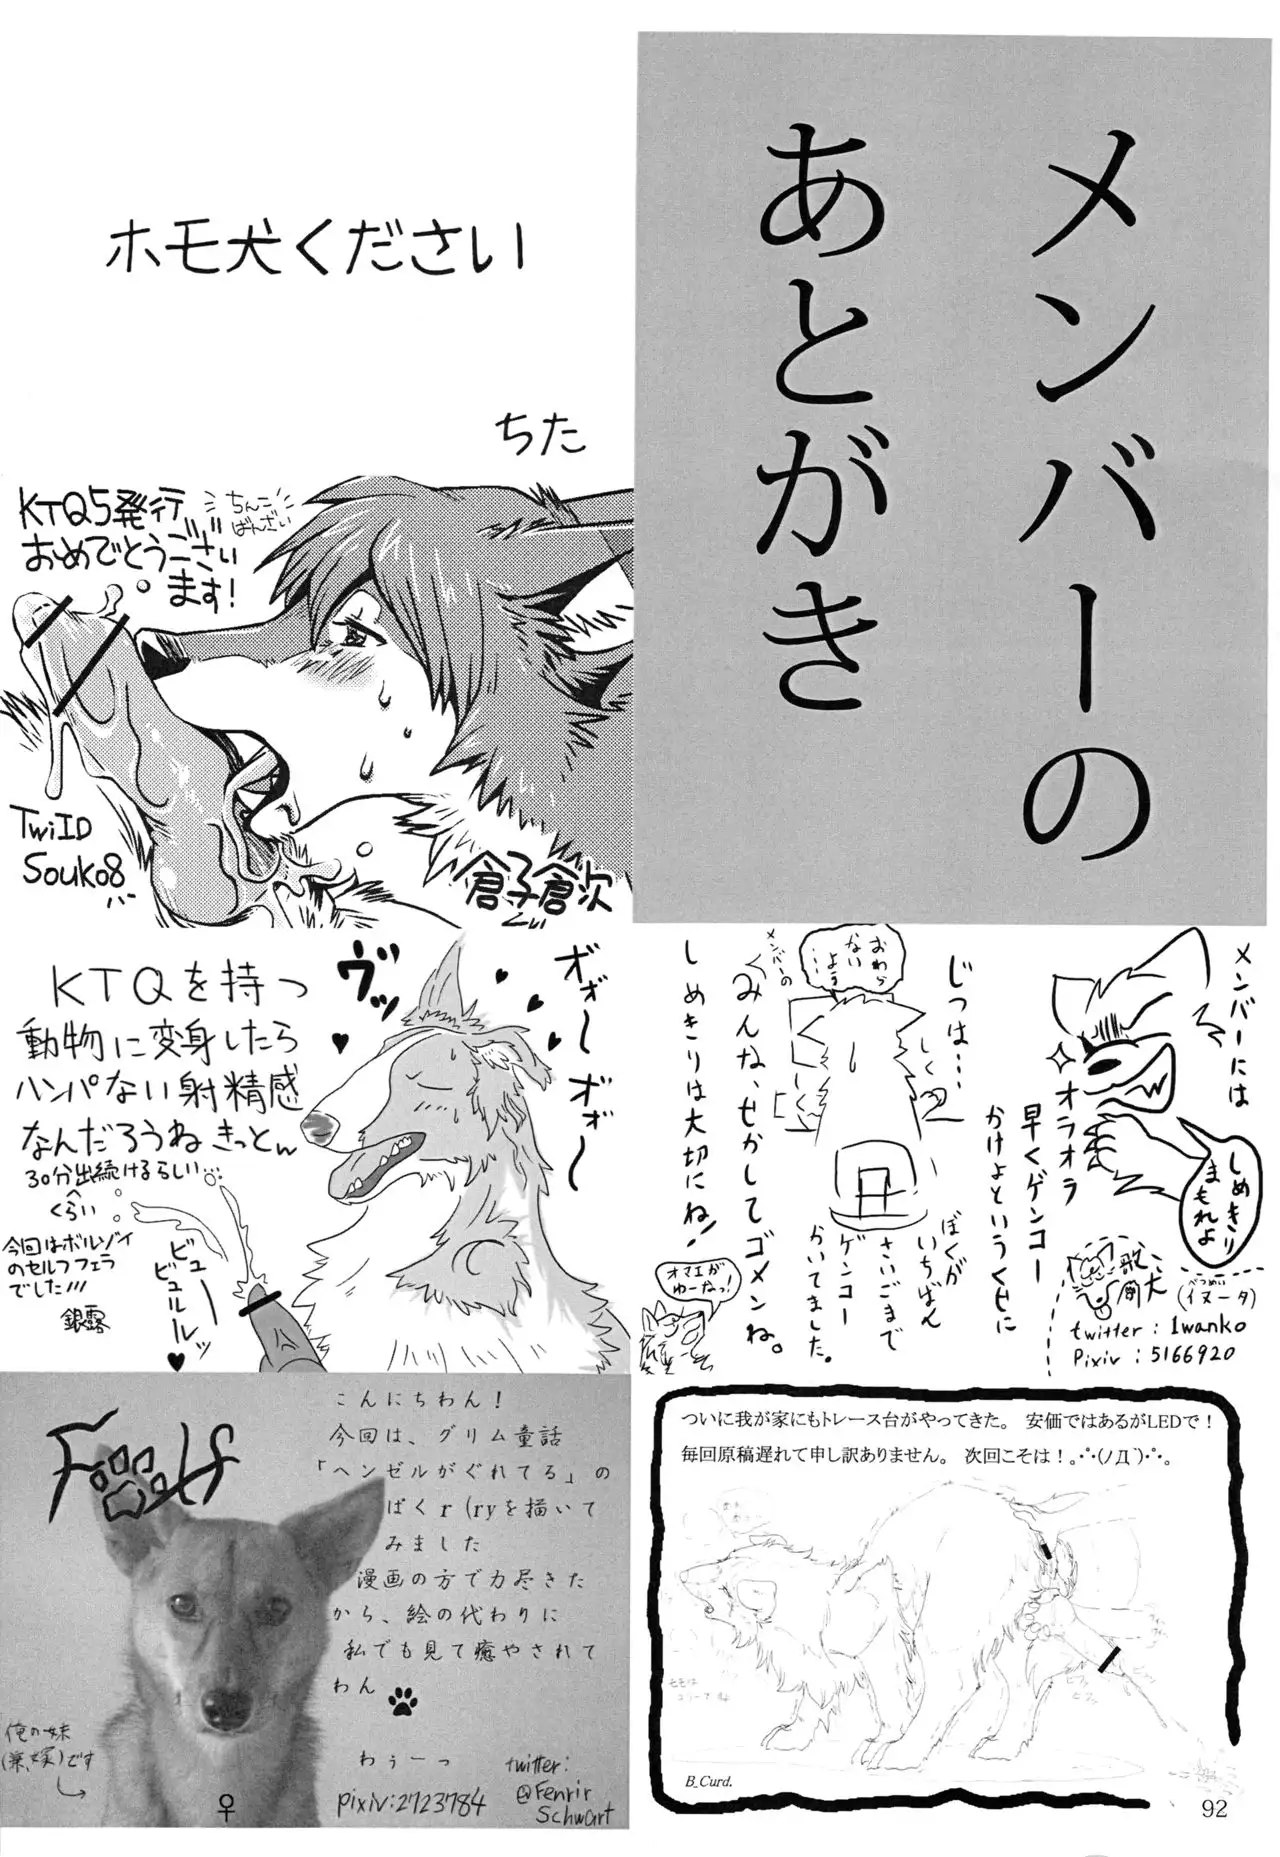 メンバーの
あとがき
ホモ犬ください
ちた
KTQ5発行
おめでとうござい
ます!
ちんこ
ばんざい
TwiID
Souko8
倉子倉次
KTQを持つ
動物に変身したら
ハンパない射精感
なんだろうねきっとw
30分出続けるらしい
くらい
今回はボルゾイ
のセルフフェラ
でした!!!
銀露
ヴッ
オォ〜
オォ〜
ビュー
ビュルルッ
メンバーには
しめきり
まもれよ
オラオラ
早くゲンコー
かけよというくせに
じつは・・・・
おわら
ない
よう
しく
ぼくが
いちばん
さいごまで
ゲンコー
かいてました。
メンバーの
みんな、せかしてゴメンね。
しめきりは大切にね!
オマエが
ゆーなっ!
(イヌータ)
twitter : 1wanko
Pixiv : 5166920
Foolf
こんにちわん!
今回は、グリム童話
「ヘンゼルがぐれてる」の
ぱくr(ryを描いて
みました
漫画の方で力尽きた
から、絵の代わりに
私でも見て癒やされて
わん
わぅーっ
俺の妹
(兼、嫁)です
♀
pixiv:2723784
twitter:
@Fenrir
Schwart
ついに我が家にもトレース台がやってきた。 安価ではあるがLEDで!
毎回原稿遅れて申し訳ありません。 次回こそは!。∵(ノД`)∵。
B_Curd.
92